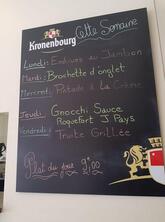 Cette Semaine
Kronenbourg
Lundi: Endives au Jambon
Mardi: Brochette d'onglet
Mercredi: Potade à La Crème
Jeudi: Gnocchi Sauce
Roquefort J Pays
Vendredi: Truite Grillée
Plat du jour 9€00